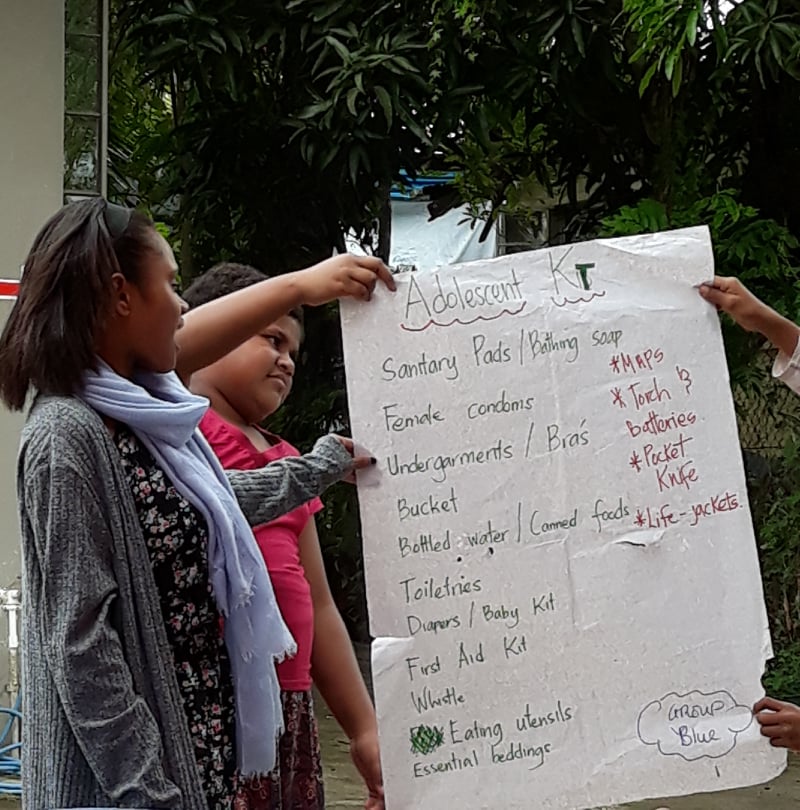 Adolescent KiT
Sanitary Pads / Bathing soap
Female condoms
Undergarments / Bra's
Bucket
Bottled water / Canned foods
Toiletries
Diapers / Baby Kit
First Aid Kit
Whistle
Eating utensils
Essential beddings
*MAPS
*Torch &
Batteries.
*Pocket
Knife
*Life-jackets.
GROUP
Blue